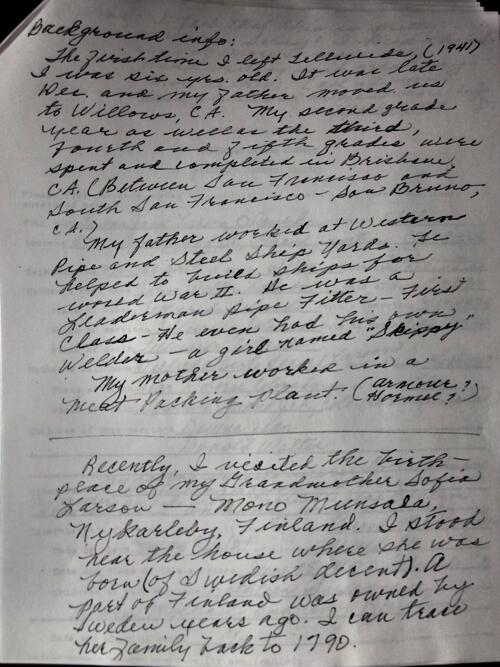 Background info:
The first time I left Telluride, (1941)
I was six yrs. old. It was late
Dec. and my father moved us
to Willows, CA. My second grade
year as well as the third,
fourth and fifth grades were
spent and completed in Brisbane,
CA. (Between San Francisco and
South San Francisco - San Bruno,
CA.)
My father worked at Western
Pipe and Steel Ship Yards. He
helped to build ships for
World War II. He was a
Leaderman Pipe Fitter - First
Class - He even had his own
Welder - a girl named "Skippy"
My mother worked in a
Meat Packing Plant. (Armour?
Hormel?)
Recently, I visited the birth-
place of my Grandmother Sofia
Larson — Mono Munsala,
Nykarleby, Finland. I stood
near the house where she was
born (of Swedish decent). A
part of Finland was owned by
Sweden years ago. I can trace
her family back to 1790.